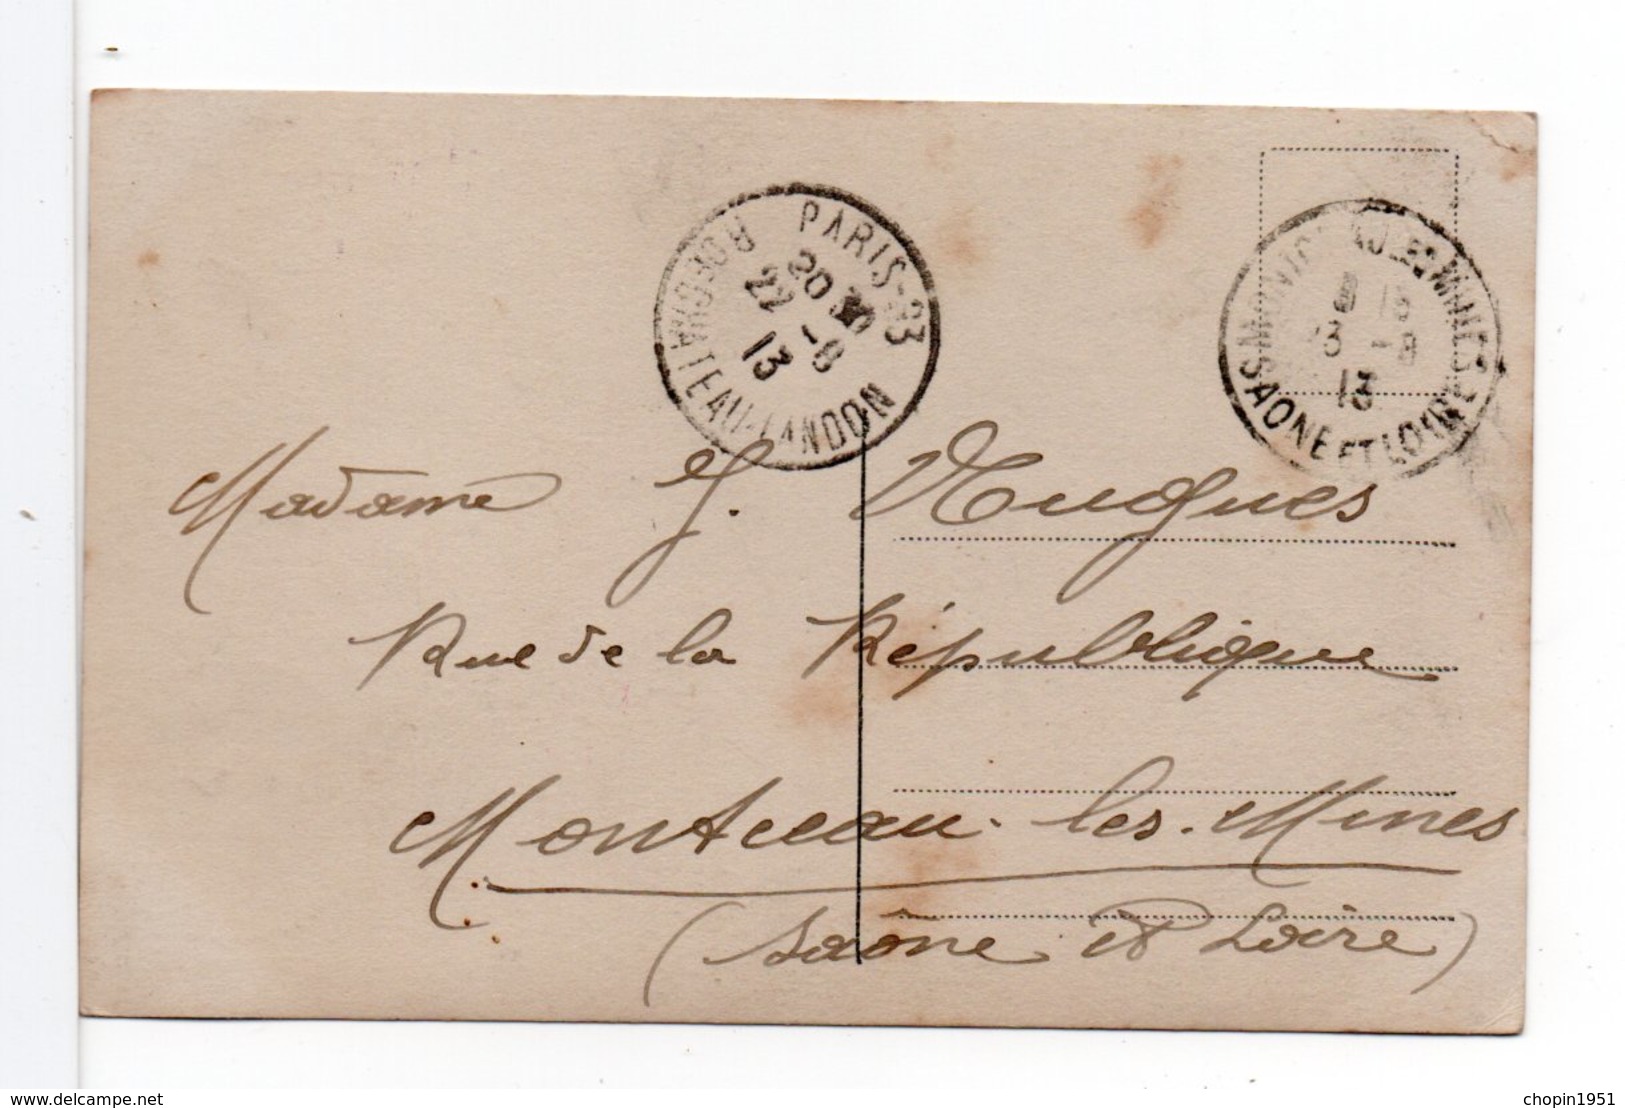 PARIS-83
R. DE CHATEAU-LANDON
20 30
22 -8
13
MONTCEAU LES MINES
SAONE ET LOIRE
13
3 -8
13
Madame J. Hugues
Rue de la République
Montceau-les-Mines
(Saône et Loire)
delcampe.net
chopin1951